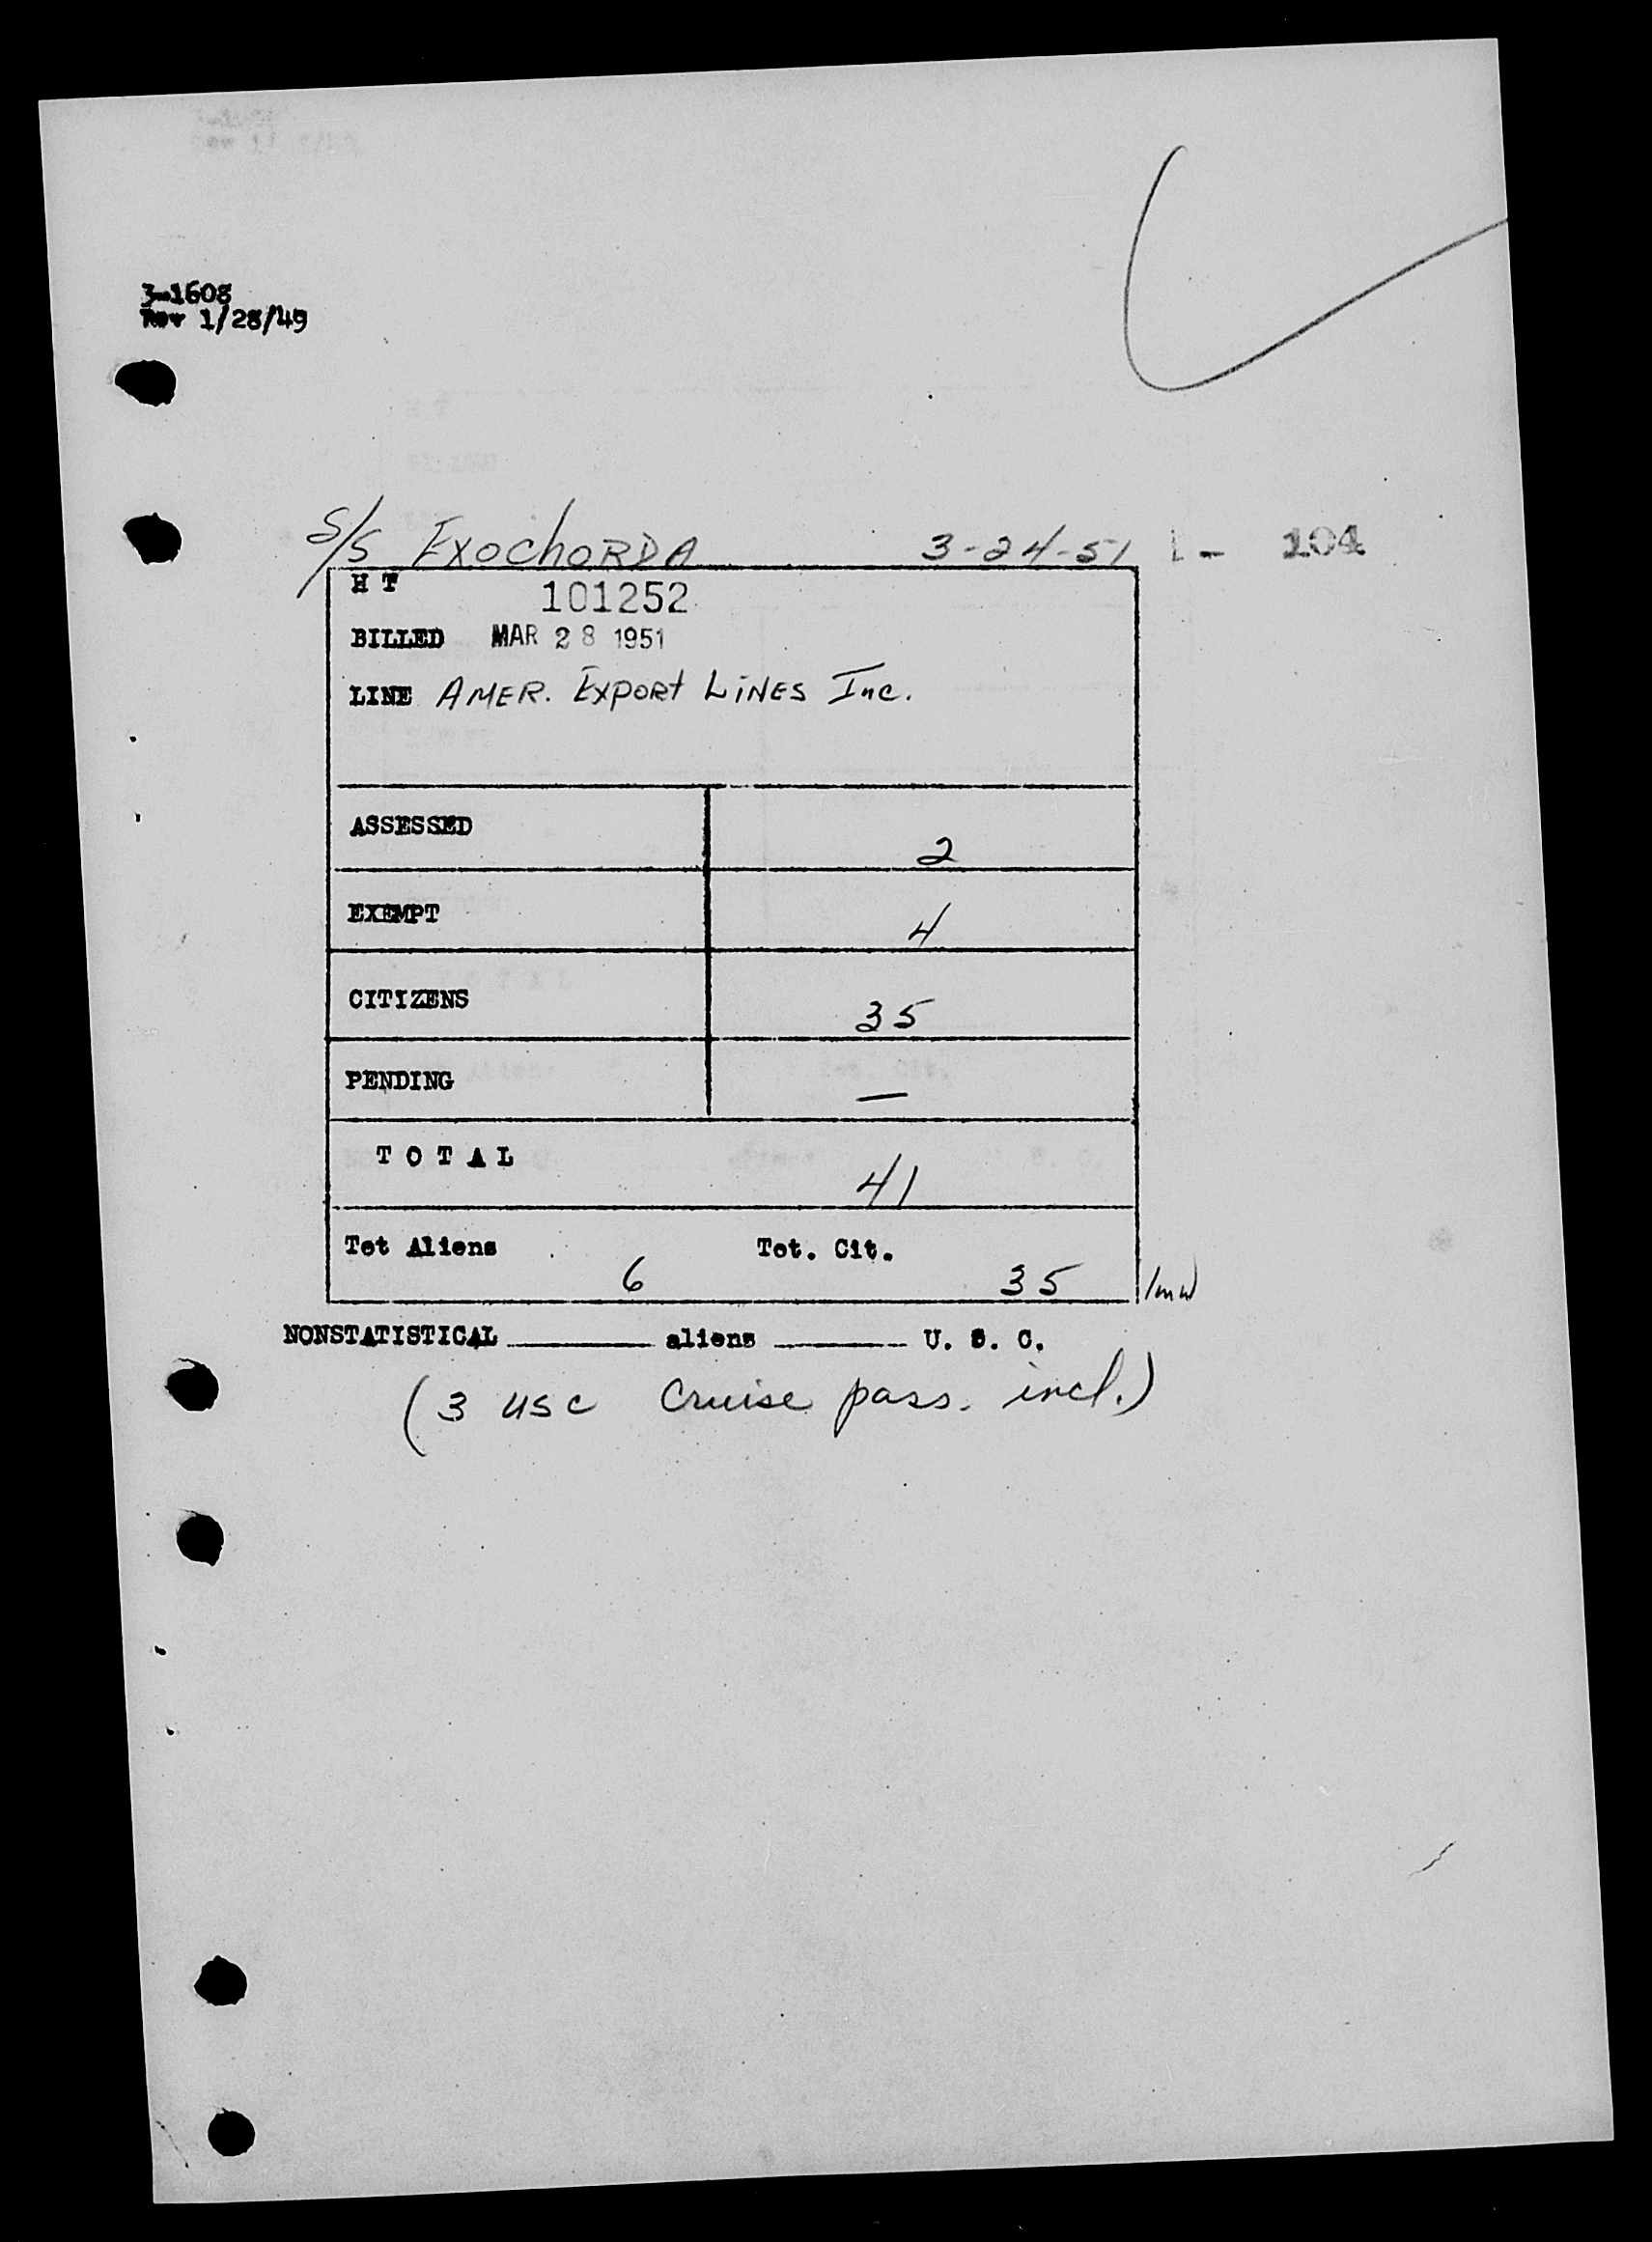 3-1608
Rev 1/28/49
S/S Exochorda 3-24-51 1 - 104
H T 101252
BILLED MAR 28 1951
LINE AMER. Export LINES Inc.
ASSESSED 2
EXEMPT 4
CITIZENS 35
PENDING —
T O T A L 41
Tot Aliens 6 Tot. Cit. 35 /mw
NONSTATISTICAL ______ aliens ______ U. S. C.
(3 USC Cruise pass. incl.)